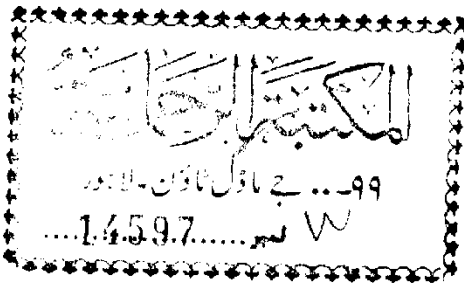 المكتبة الرحمانية
۹۹... جے ماڈل ٹاؤن - لاہور
نمبر.....14597.....